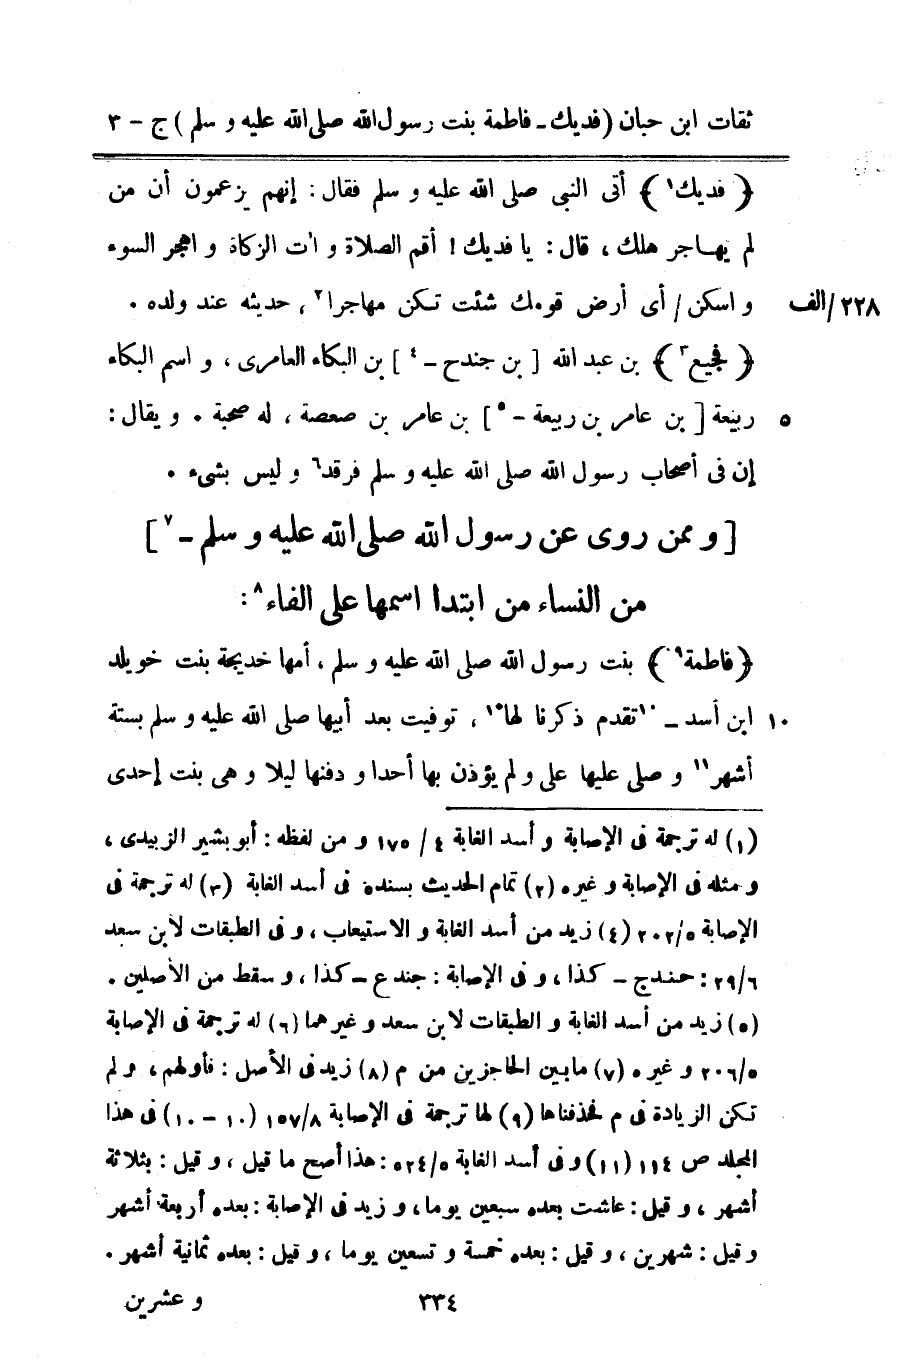 ثقات ابن حبان (فديك ـ فاطمة بنت رسول الله صلى الله عليه و سلم) ج - ٣
﴿ فديك١ ﴾ أتى النبى صلى الله عليه و سلم فقال: إنهم يزعمون أن من
لم يهـاجر هلك، قال: يا فديك! أقم الصلاة و اٰت الزكاة و اهجر السوء
٢٢٨/الف و اسكن/ أى أرض قومك شئت تكن مهاجرا٢، حديثه عند ولده.
﴿ فجيع٣ ﴾ بن عبد الله [ بن جندح - ٤ ] بن البكاء العامرى، و اسم البكاء
٥ ربيعة [ بن عامر بن ربيعة - ٥ ] بن عامر بن صعصة، له صحبة. و يقال:
إن فى أصحاب رسول الله صلى الله عليه و سلم فرقد٦ و ليس بشىء.
[ و ممن روى عن رسول الله صلى الله عليه و سلم - ٧ ]
من النساء من ابتدا اسمها على الفاء٨:
﴿ فاطمة٩ ﴾ بنت رسول الله صلى الله عليه و سلم، أمها خديجة بنت خويلد
١٠ ابن أسد ـ ١٠تقدم ذكرنا لها١٠، توفيت بعد أبيها صلى الله عليه و سلم بستة
أشهر١١ و صلى عليها على و لم يؤذن بها أحدا و دفنها ليلا و هى بنت إحدى
(١) له ترجمة فى الإصابة و أسد الغابة ٤/ ١٧٥ و من لفظه: أبو بشير الزبيدى،
و مثله فى الإصابة و غيره (٢) تمام الحديث بسنده فى أسد الغابة (٣) له ترجمة فى
الإصابة ٢٠٢/٥ (٤) زيد من أسد الغابة و الاستيعاب، و فى الطبقات لابن سعد
٢٩/٦: حندج - كذا، و فى الإصابة: جندع - كذا، و سقط من الأصلين.
(٥) زيد من أسد الغابة و الطبقات لابن سعد و غيرهما (٦) له ترجمة فى الإصابة
٢٠٦/٥ و غيره (٧) ما بين الحاجزين من م (٨) زيد فى الأصل: فأولهم، و لم
تكن الزيادة فى م فحذفناها (٩) لها ترجمة فى الإصابة ١٥٧/٨ (١٠ - ١٠) فى هذا
المجلد ص ١١٤ (١١) و فى أسد الغابة ٥٢٤/٥: هذا أصح ما قيل، و قيل: بثلاثة
أشهر، و قيل: عاشت بعده سبعين يوما، و زيد فى الإصابة: بعده أربعة أشهر
و قيل: شهرين، و قيل: بعده خمسة و تسعين يوما، و قيل: بعده ثمانية أشهر.
٣٣٤ و عشرين